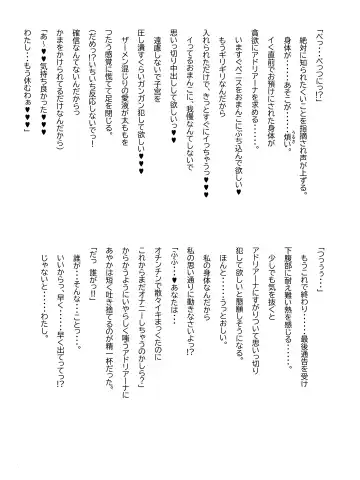 「べっ・・べっつにっ!?」
絶対に知られたくいことを指摘され声が上ずる。
身体が・・・・あそこが・・・・煩い。
イく直前でお預けにされた身体が
貪欲にアドリアーナを求める・・・・・。
いますぐペニスをおまんこにぶち込んで欲しい♥
もうギリギリなんだから
入れられただけで、きっとすぐにイっちゃうっ♥♥♥
イってるおまんこに、我慢なんてしないで
思いっ切り中出しして欲しいっ♥
遠慮しないで子宮を
圧し潰すくらいガンガン犯して欲しい♥♥♥
ザーメン混じりの愛液が太ももを
つたう感覚に慌てて足を閉じる。
(だめっ!?いちいち反応しないでっ!
確信なんてないんだからっ
かまをかけられてるだけなんだから)
「あ～♥気持ち良かった♥♥♥
わたし・・もう休むわぁ♥♥♥」
「つうぅぅ・・・」
もうこれで終わり・・・・最後通告を受け
下腹部に耐え難い熱を感じる・・・・・。
少しでも気を抜くと
アドリアーナにすがりついて思いっ切り
犯して欲しいと懇願しそうになる。
ほんと・・・・うっとおしい。
私の身体なんだから
私の思い通りに動きなさいよっ!?
「ふふ・・♥あなたは・・
オチンチンで散々イきまったくのに
これからまだオナニーしちゃうのかしら?」
からかうようにいやらしく嗤うアドリアーナに
あやかは短く吐き捨てるのが精一杯だった。
「だっ 誰がっ!!」
誰が・・そんな・・こと う・・。
いいから っ、早く・・・早く出てってっ!?
じゃないと・・・・わたし。